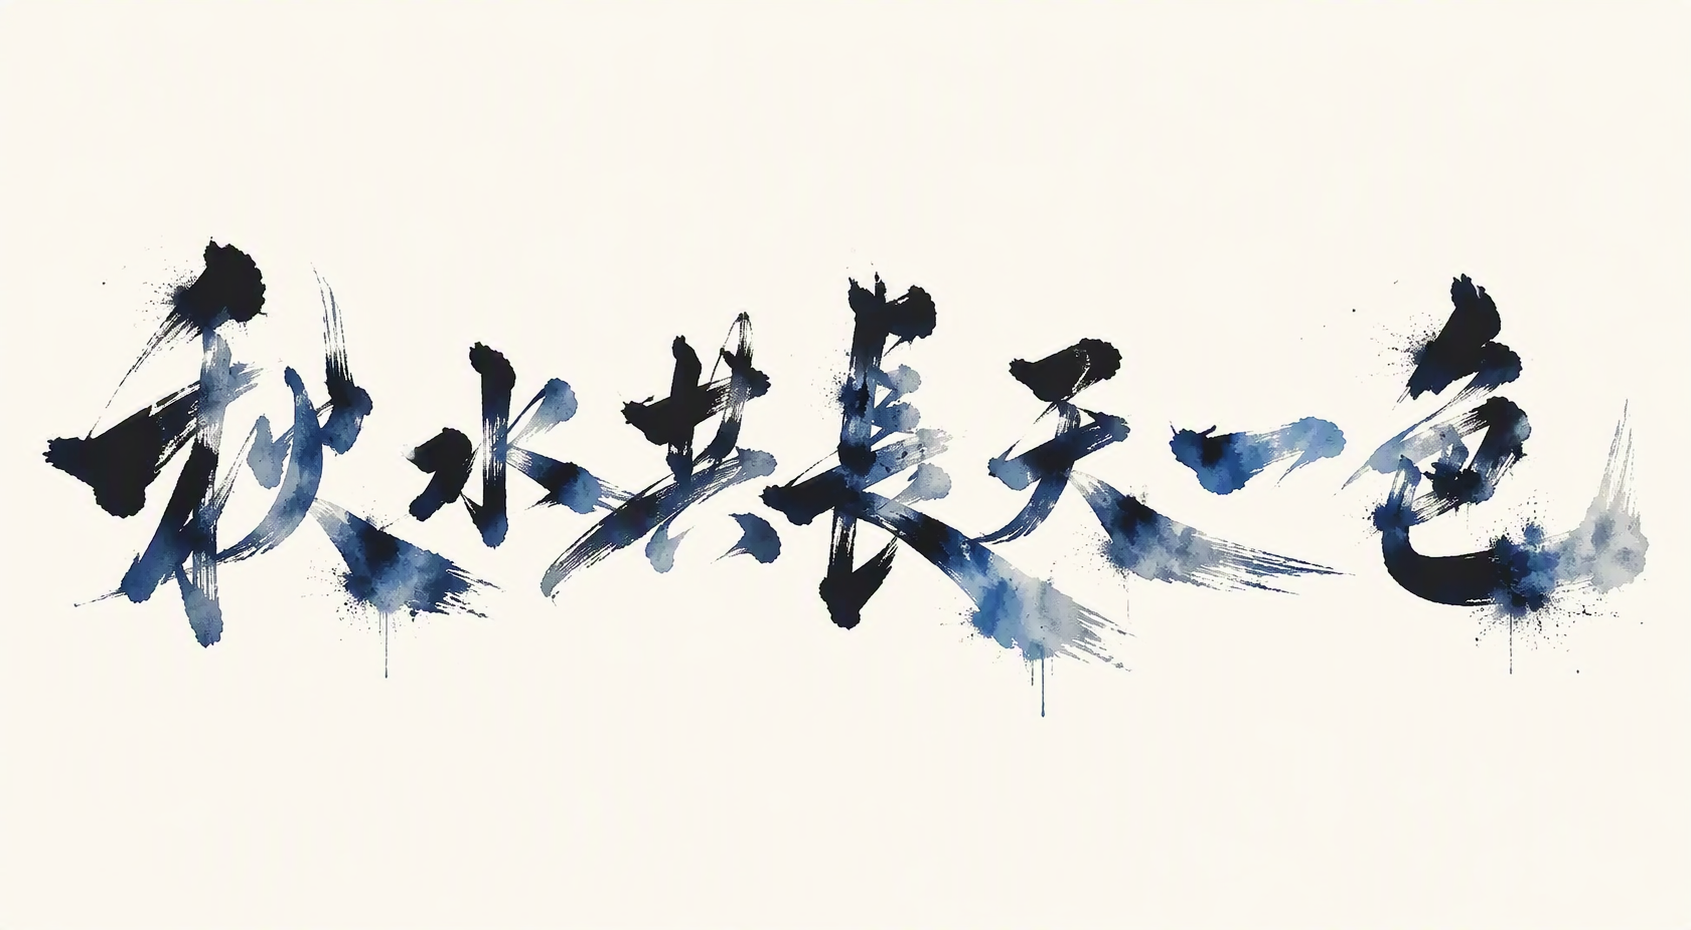 秋水共長天一色